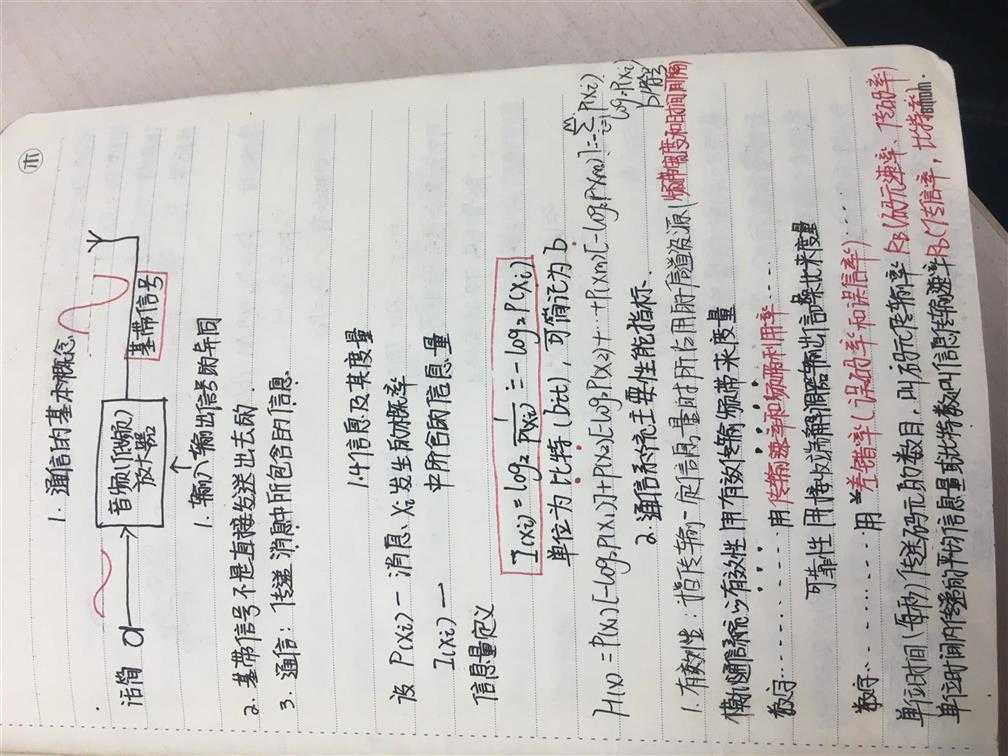 1. 通信的基本概念
话筒
音频(低频)
放大器
基带信号
1. 输入输出信号的异同
2. 基带信号不是直接发送出去的
3. 通信：传递消息中所包含的信息.
1.4信息及其度量
设 P(xi) — 消息 xi 发生的概率
I(xi) — 中所含的信息量
信息量定义
I(xi) = log₂ 1/P(xi) = -log₂P(xi)
单位为比特(bit)，可简记为 b
H(x) = P(x₁)[-log₂P(x₁)]+P(x₂)[-log₂P(x₂)]+…+P(xm)[-log₂P(xm)]=-∑P(xi)
log₂P(xi)
2. 通信系统主要性能指标.
1. 有效性：指传输一定信息量时所占用的信道资源(频带宽度和时间间隔)
模拟通信系统有效性用有效传输频带来度量
数字…………用传输速率和频带利用率…
可靠性 用接收端解调器输出信噪比来度量
数字…………用 差错率(误码率和误信率)…
单位时间(每秒)传送码元的数目，叫码元传输率 RB(码元速率、传码率)
单位时间内传递的平均信息量或比特数叫信息传输速率Rb(传信率，比特率)